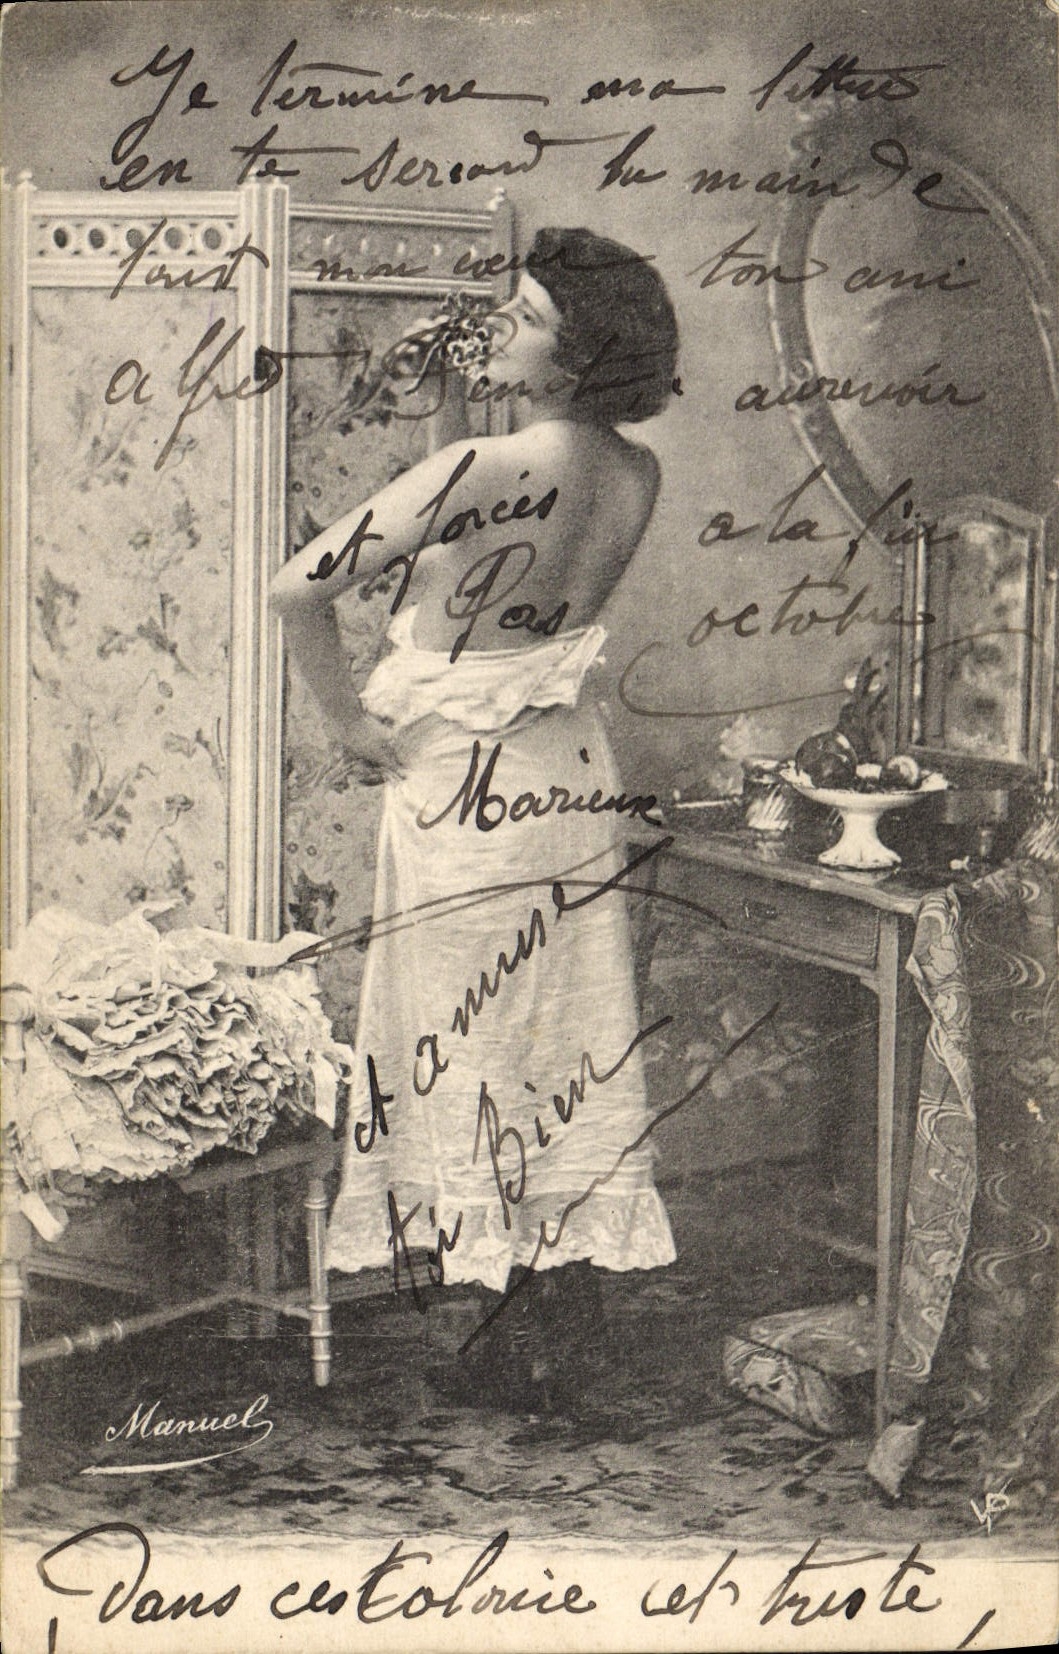 Je termine ma lettre
en te serrant la main de
tout mon cœur ton ami
Alfred aurevoir
et forcés a la fin
Pas octobre
Marieux
et amuse
toi Bien
Manuel
Dans cest Colonie et triste